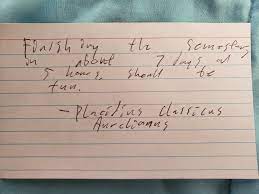 Finishing the semester
in about 2 days at
5 hours, should be
fun.
– Placidius Classicus
Aurelianus